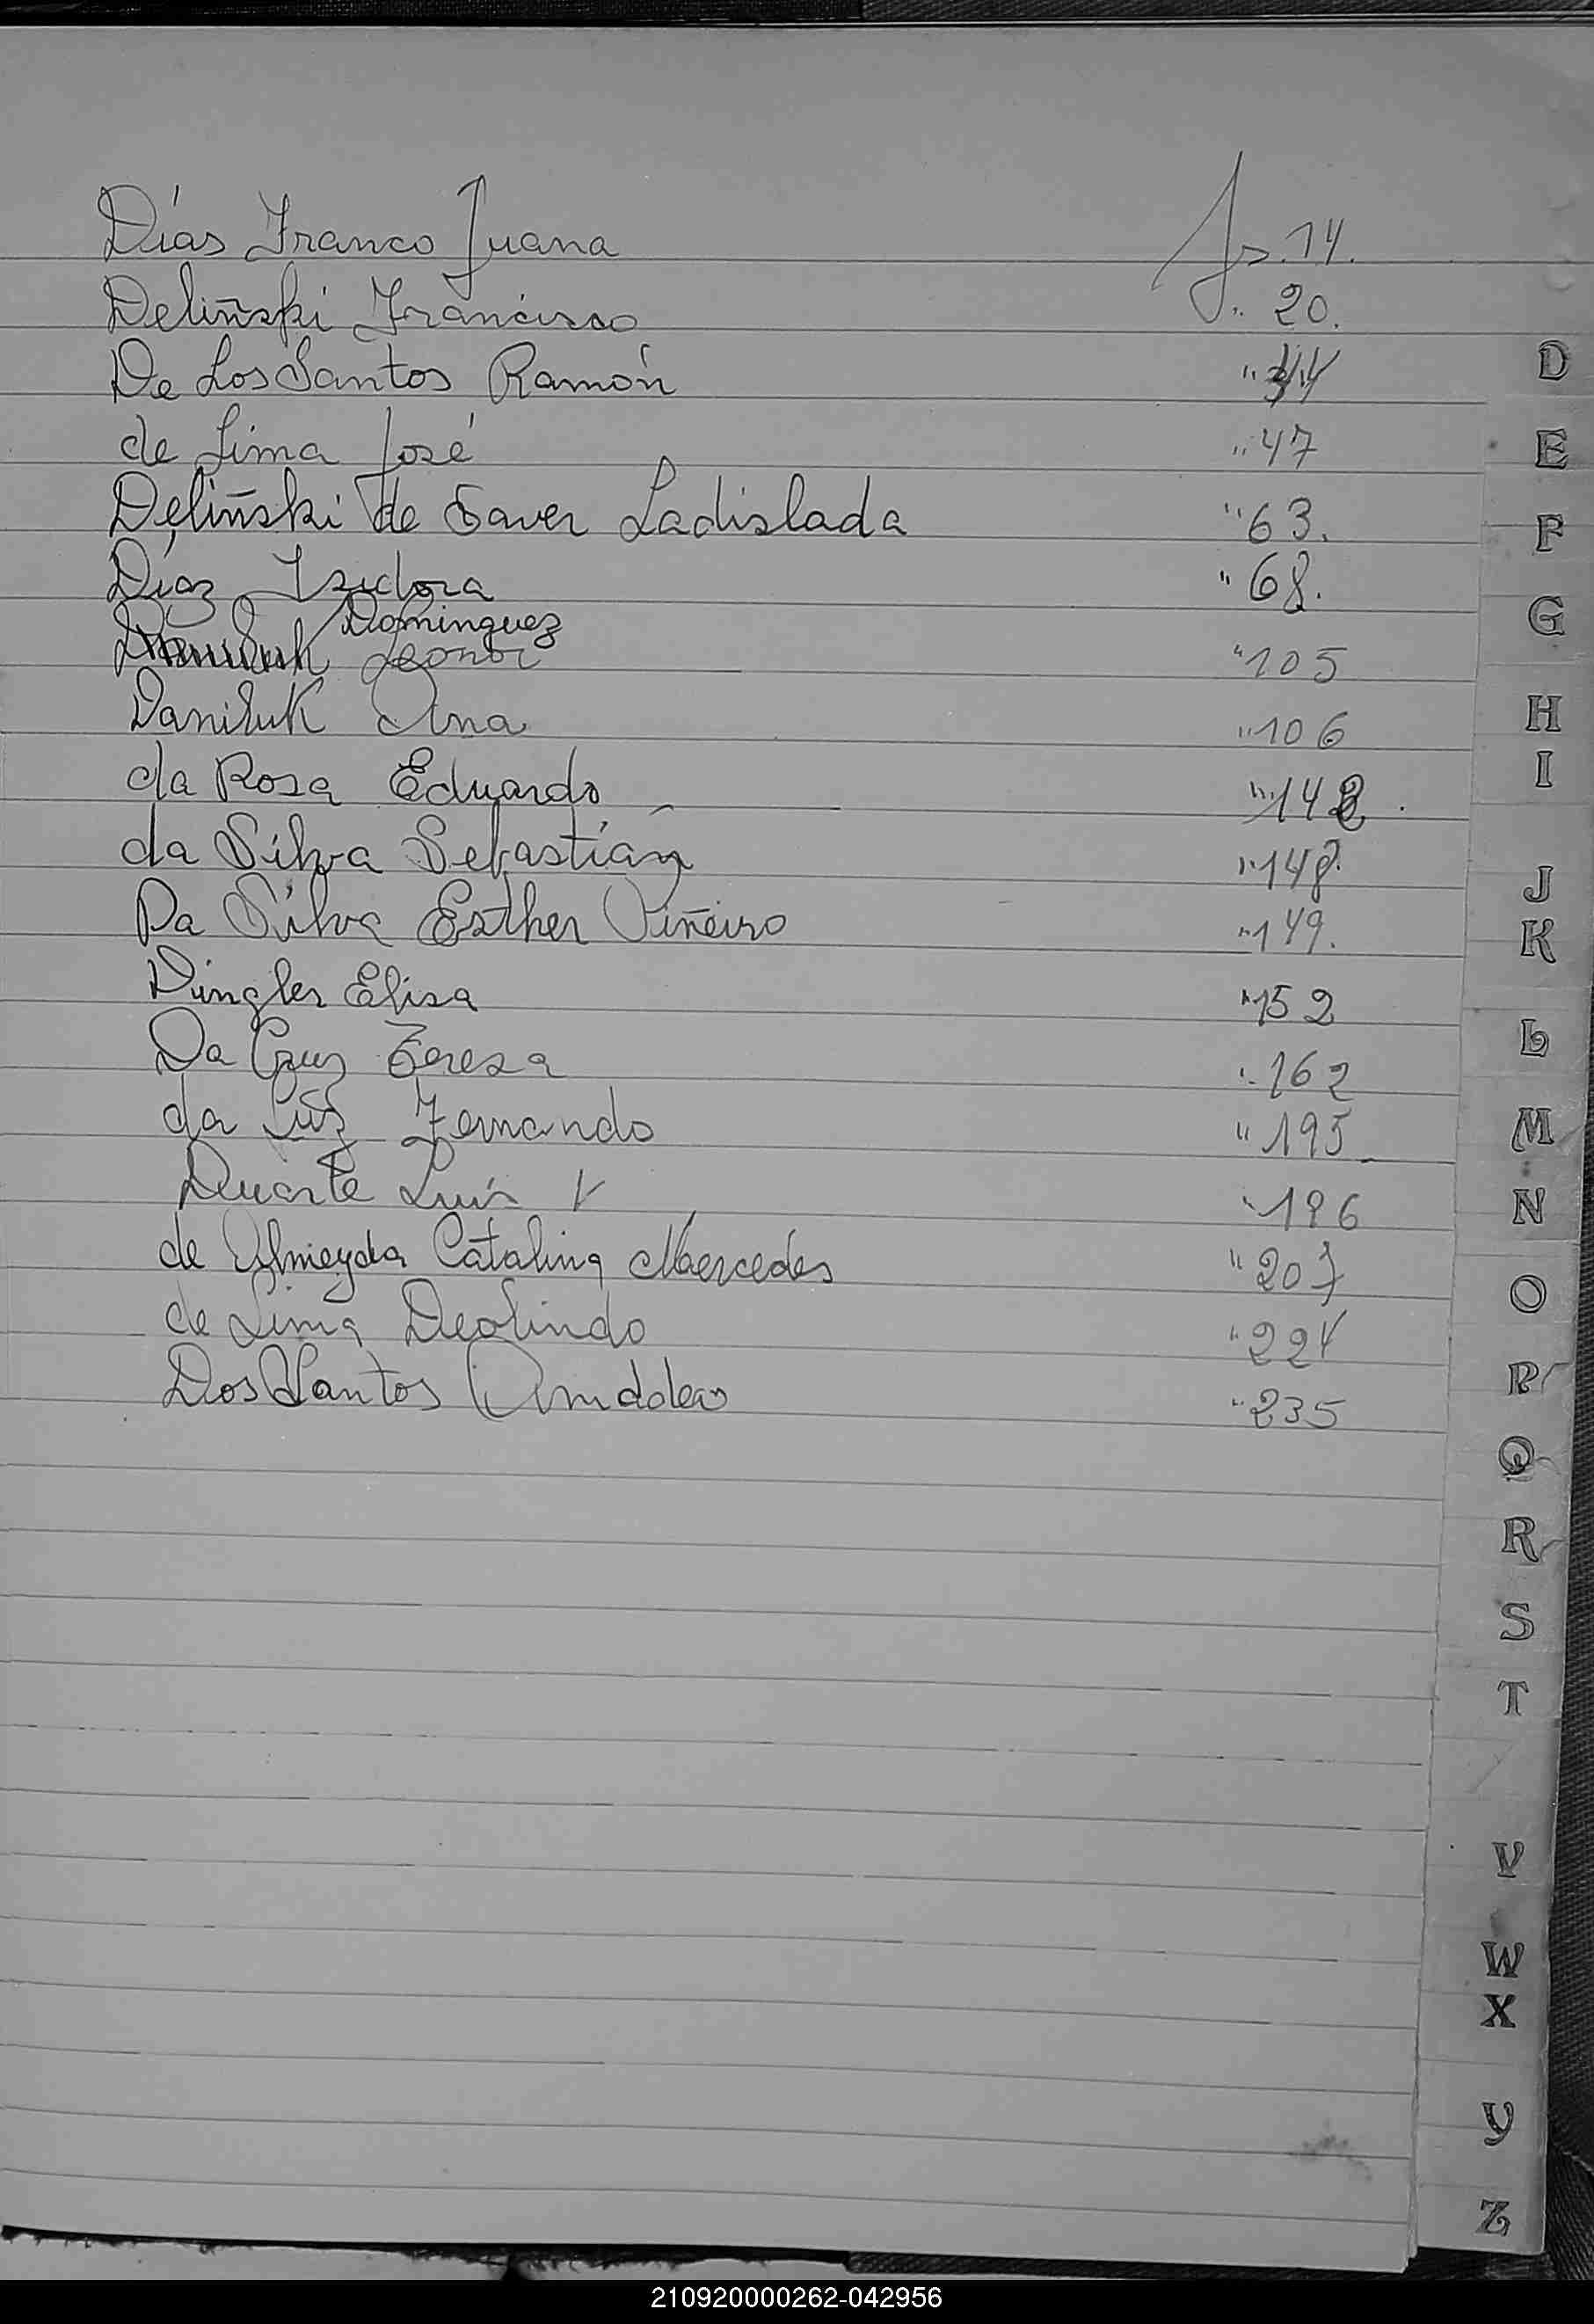 Días Franco Juana fs. 14.
Deliñski Francisco " 20.
De Los Santos Ramón " 44
de Lima José " 47
Deliñski de Saver Ladislada " 63.
Díaz Izidora " 68.
Dominguez
Leonor " 105
Daniluk Ana " 106
da Rosa Eduardo " 142.
da Silva Sebastián " 148.
Da Silva Esther Piñeiro " 149.
Dingler Elisa " 152
Da Cruz Teresa " 162
da Luz Fernando " 195
Duarte Luis V " 196
de Almeyda Catalina Mercedes " 207
de Lima Deolindo " 224
Dos Santos " 235
D
E
F
G
H
I
J
K
L
M
N
O
P
Q
R
S
T
V
W
X
Y
Z
210920000262-042956